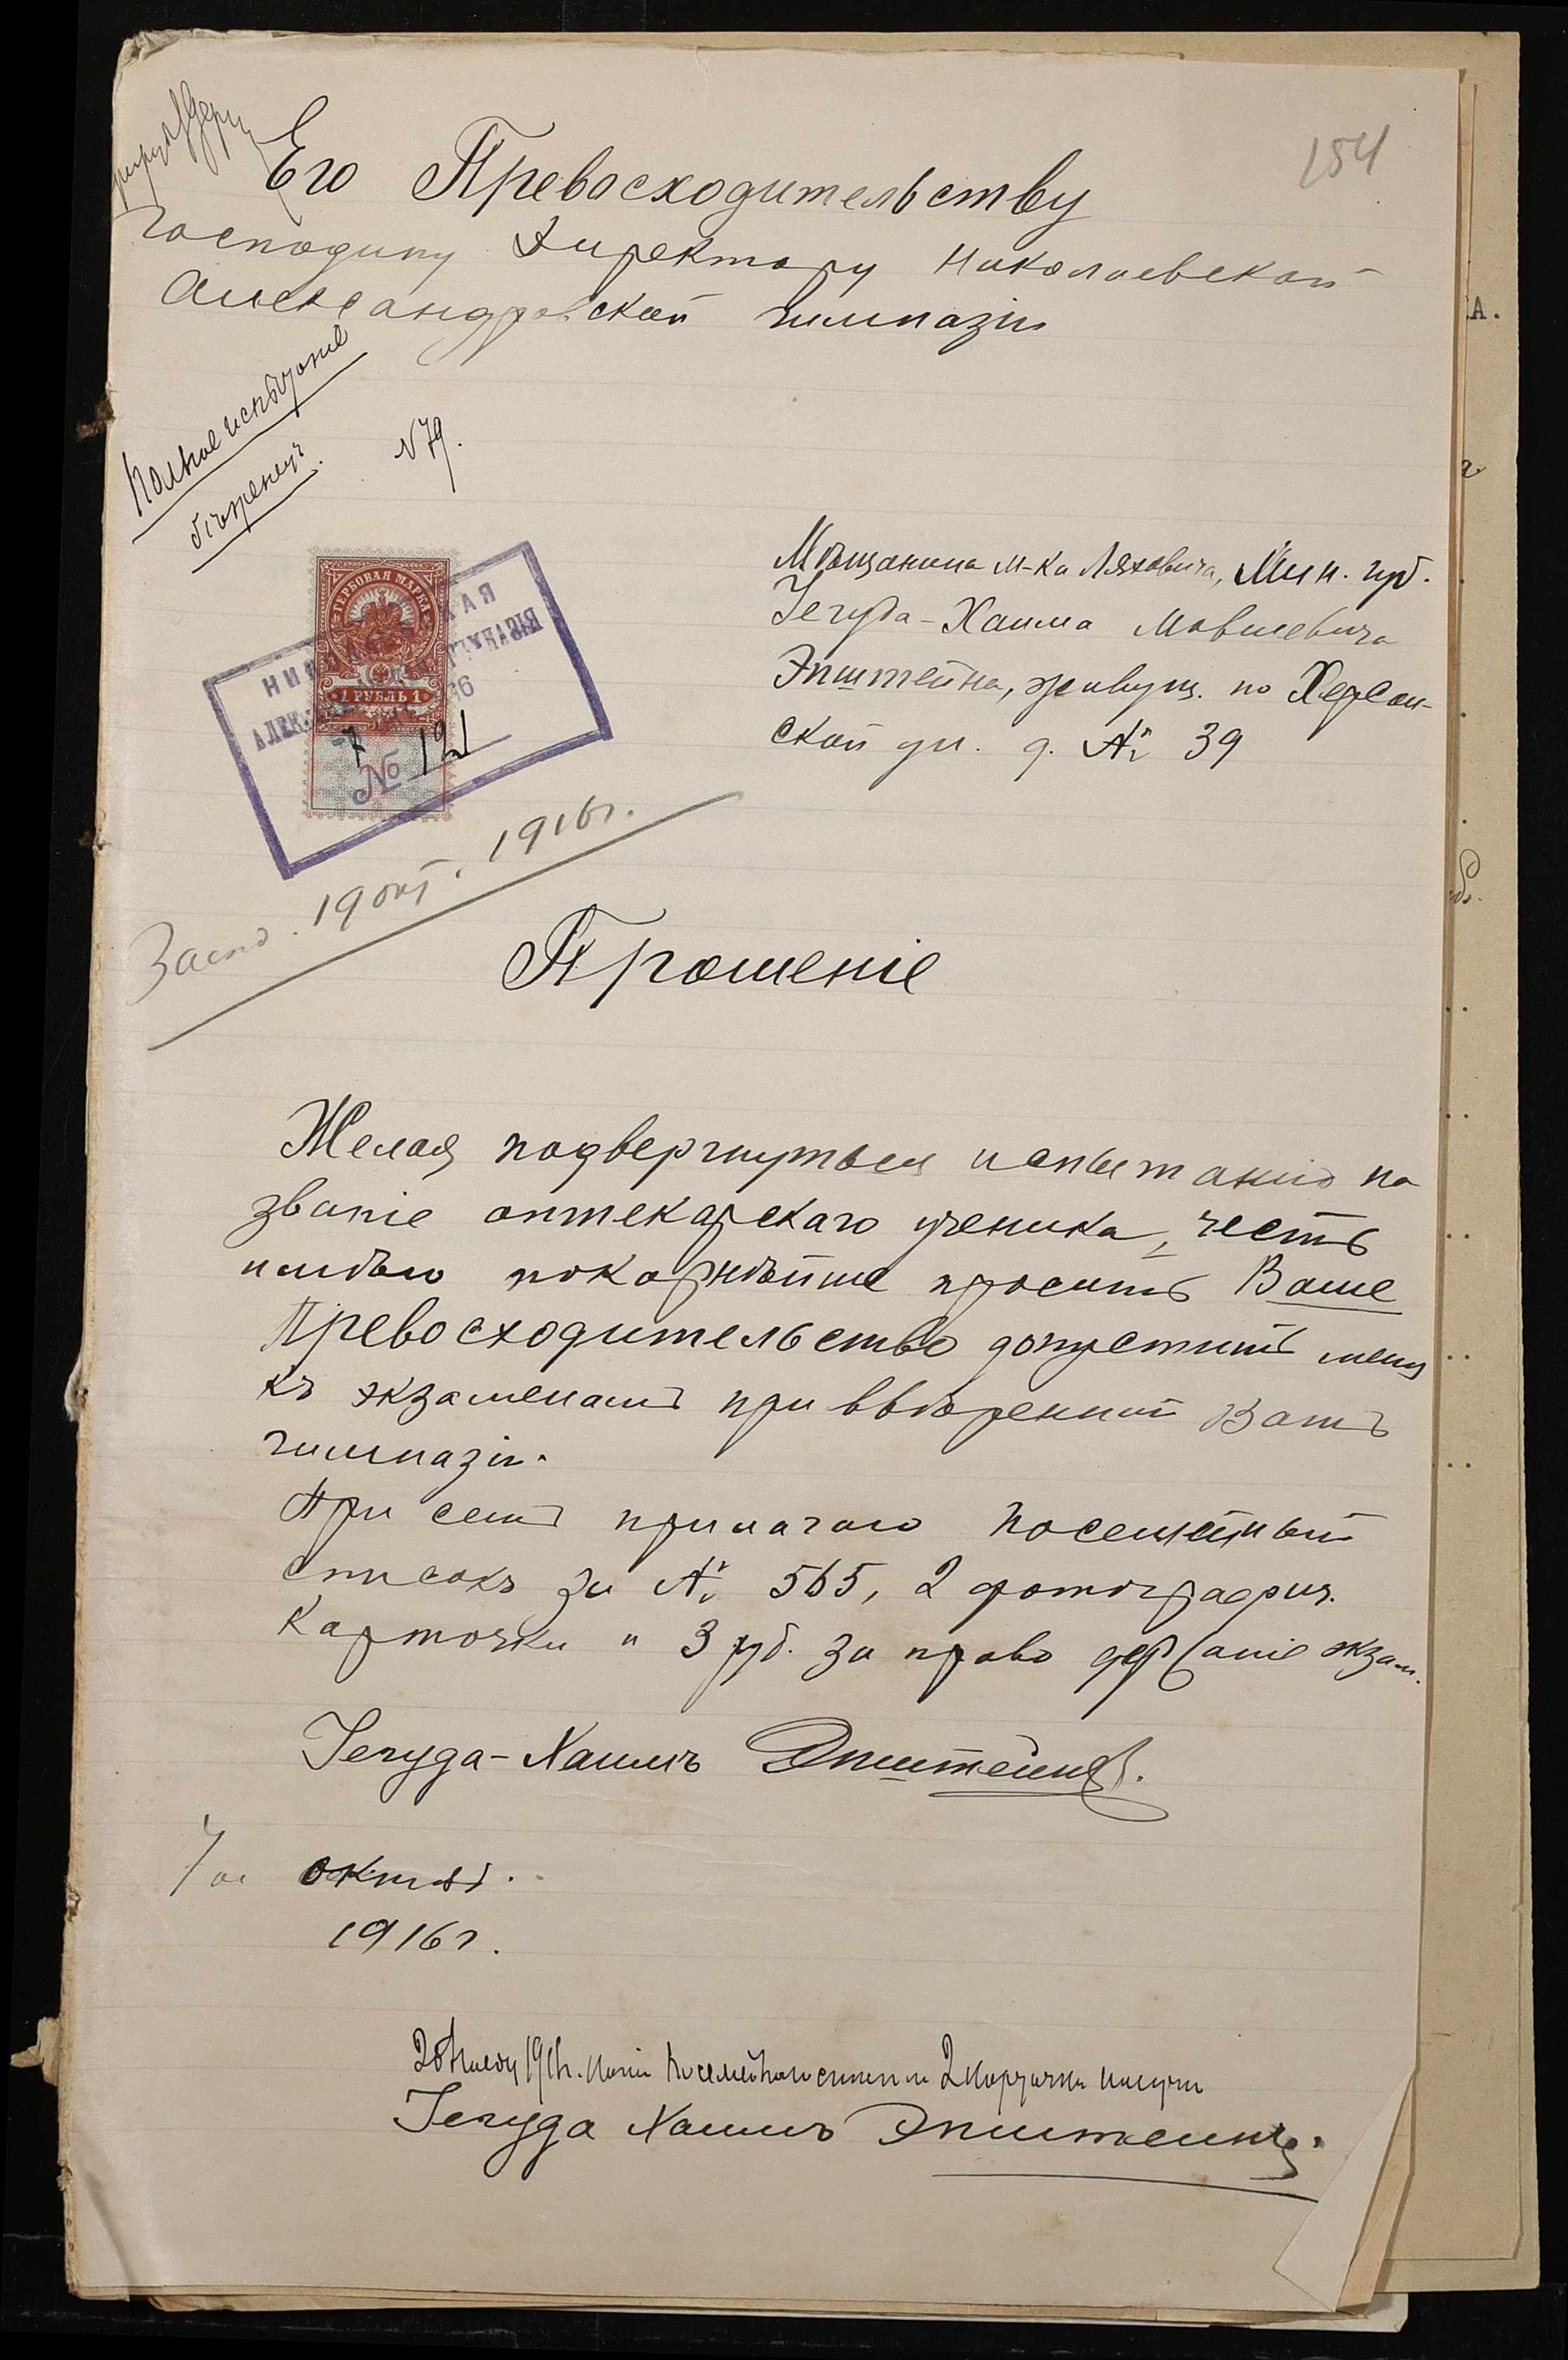 154
Его Превосходительству
Господину Директору Николаевской
Александровской гимназіи
Полное испытаніе
бѣженецъ.
N 79.
Мѣщанина м-ка Ляховича, Мин. губ.
Іегуда-Хаима Мовшевича
Эпштейна, живущ. по Херсон-
ской ул. д. № 39
ГЕРБОВАЯ МАРКА
1 РУБЛЬ 1
7
№ 121
Засѣд. 19 окт. 1916 г.
Прошеніе
Желая подвергнуться испытанію на
званіе аптекарскаго ученика, честь
имѣю покорнѣйше просить Ваше
Превосходительство допустить меня
къ экзаменамъ при ввѣренной Вамъ
гимназіи.
При семъ прилагаю посемейный
списокъ за № 565, 2 фотографич.
карточки и 3 руб. за право держаніе экзам.
Іегуда-Хаимъ Эпштейнъ.
7го октяб.
1916 г.
посемейнаго списка и 2 карточки получи
Іегуда Хаимъ Эпштейнъ.